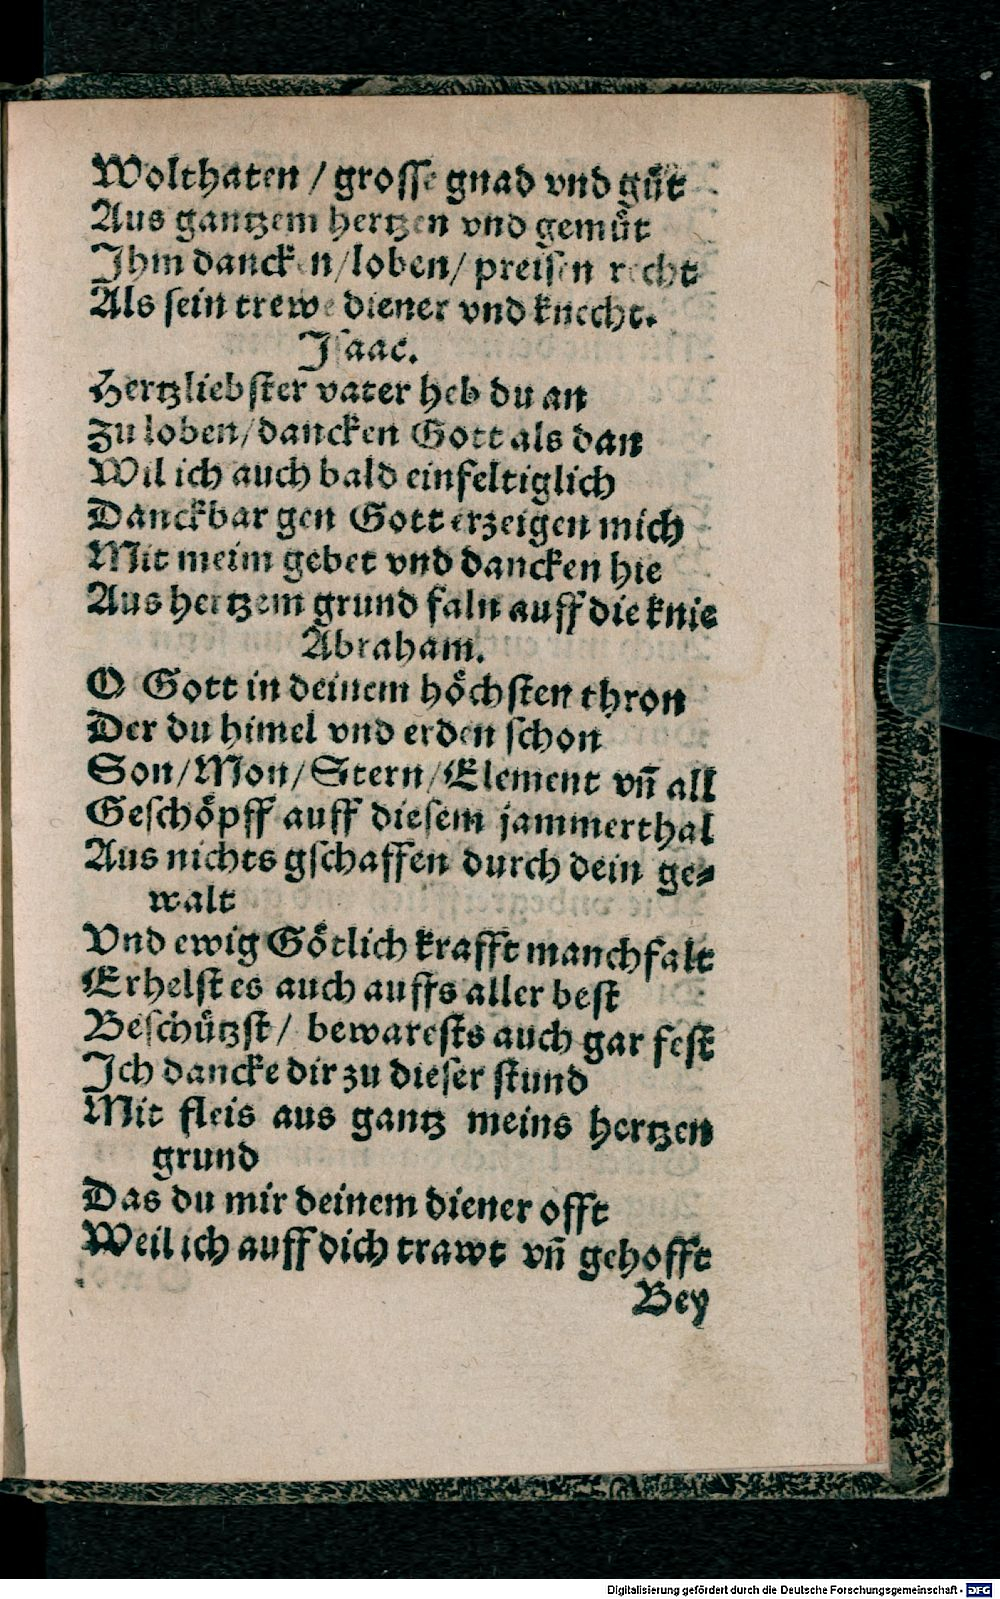 Wolthaten / grosse gnad vnd güt
Aus gantzem hertzen vnd gemüt
Ihm dancken/loben/ preisen recht
Als sein trewe diener vnd knecht.
Isaac.
Hertzliebster vater heb du an
Zu loben/dancken Gott als dan
Wil ich auch bald einfeltiglich
Danckbar gen Gott erzeigen mich
Mit meim gebet vnd dancken hie
Aus hertzem grund faln auff die knie
Abraham.
O Gott in deinem höchsten thron
Der du himel vnd erden schon
Son/Mon/Stern/Element vñ all
Geschöpff auff diesem jammerthal
Aus nichts gschaffen durch dein ge-
walt
Vnd ewig Götlich krafft manchfalt
Erhelst es auch auffs aller best
Beschützst/ bewarests auch gar fest
Ich dancke dir zu dieser stund
Mit fleis aus gantz meins hertzen
grund
Das du mir deinem diener offt
Weil ich auff dich trawt vñ gehofft
Bey
Digitalisierung gefördert durch die Deutsche Forschungsgemeinschaft - DFG